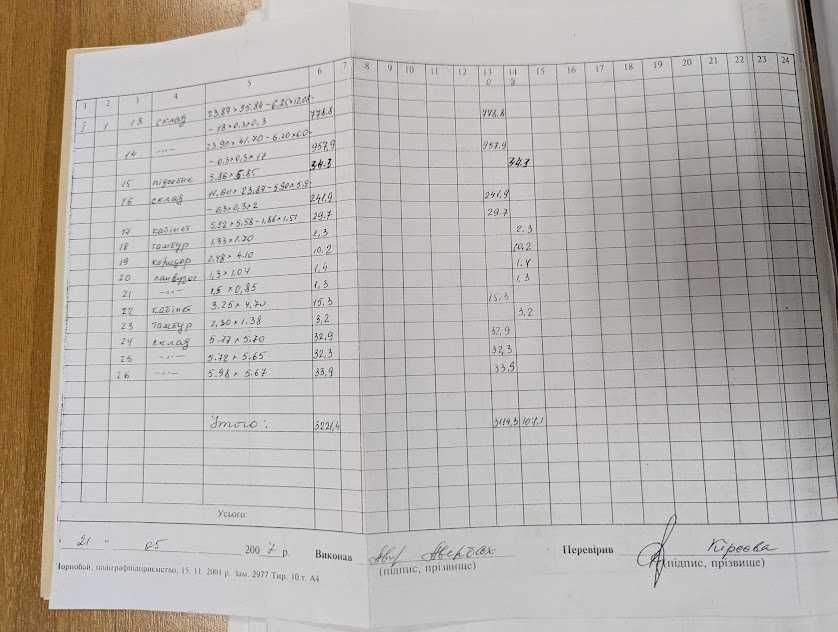 1 2 3 4 5 6 7 8 9 10 11 12 13 14 15 16 17 18 19 20 21 22 23 24
1 1 13 склад 23.89 × 35.84 – 6.25 × 12.08 – 778.8 778.8
– 18 × 0.3 × 0.3
14 –"– 23.90 × 41.70 – 6.20 × 6.0 – 957,9 957.9
– 0.3 × 0.3 × 17
15 5.86 × 5.85 34.3 34.3
16 склад 11.60 × 23.89 – 5.90 × 5.9 – 241,9 241,9
– 0.3 × 0.3 × 2
17 кабінет 5.92 × 5.58 – 1.86 × 1.51 29.7 29.7
18 тамбур 1.33 × 1.70 2,3 2,3
19 коридор 2,48 × 4.10 10,2 10,2
20 санвузол 1,3 × 1.04 1,4 1,4
21 –"– 1,5 × 0,85 1,3 1,3
22 кабінет 3.25 × 4.70 15,3 15,3
23 тамбур 2,30 × 1.38 3,2 3,2
24 склад 5.77 × 5.70 32,9 32,9
25 –"– 5.72 × 5.65 32,3 32,3
26 –"– 5.98 × 5.67 33,9 33,9
Итого: 3221,4 107.1
Усього:
21 " 05 2007 р. Виконав Перевірив Кірєєва
(підпис, прізвище) (підпис, прізвище)
Чорнобаї, поліграфпідприємство, 15. 11. 2001 р. Зам. 2977 Тир. 10 т. А4